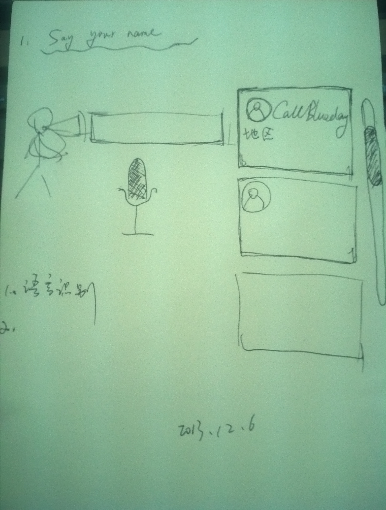 1. Say your name
CallBlueday
地区
1. 语言识别
2.
2013.12.6